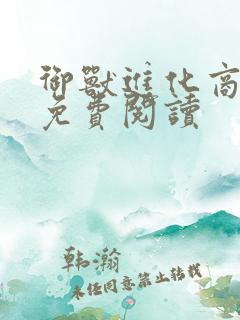 御獸進化商
免費閱讀
韩瀚
未经同意禁止转载